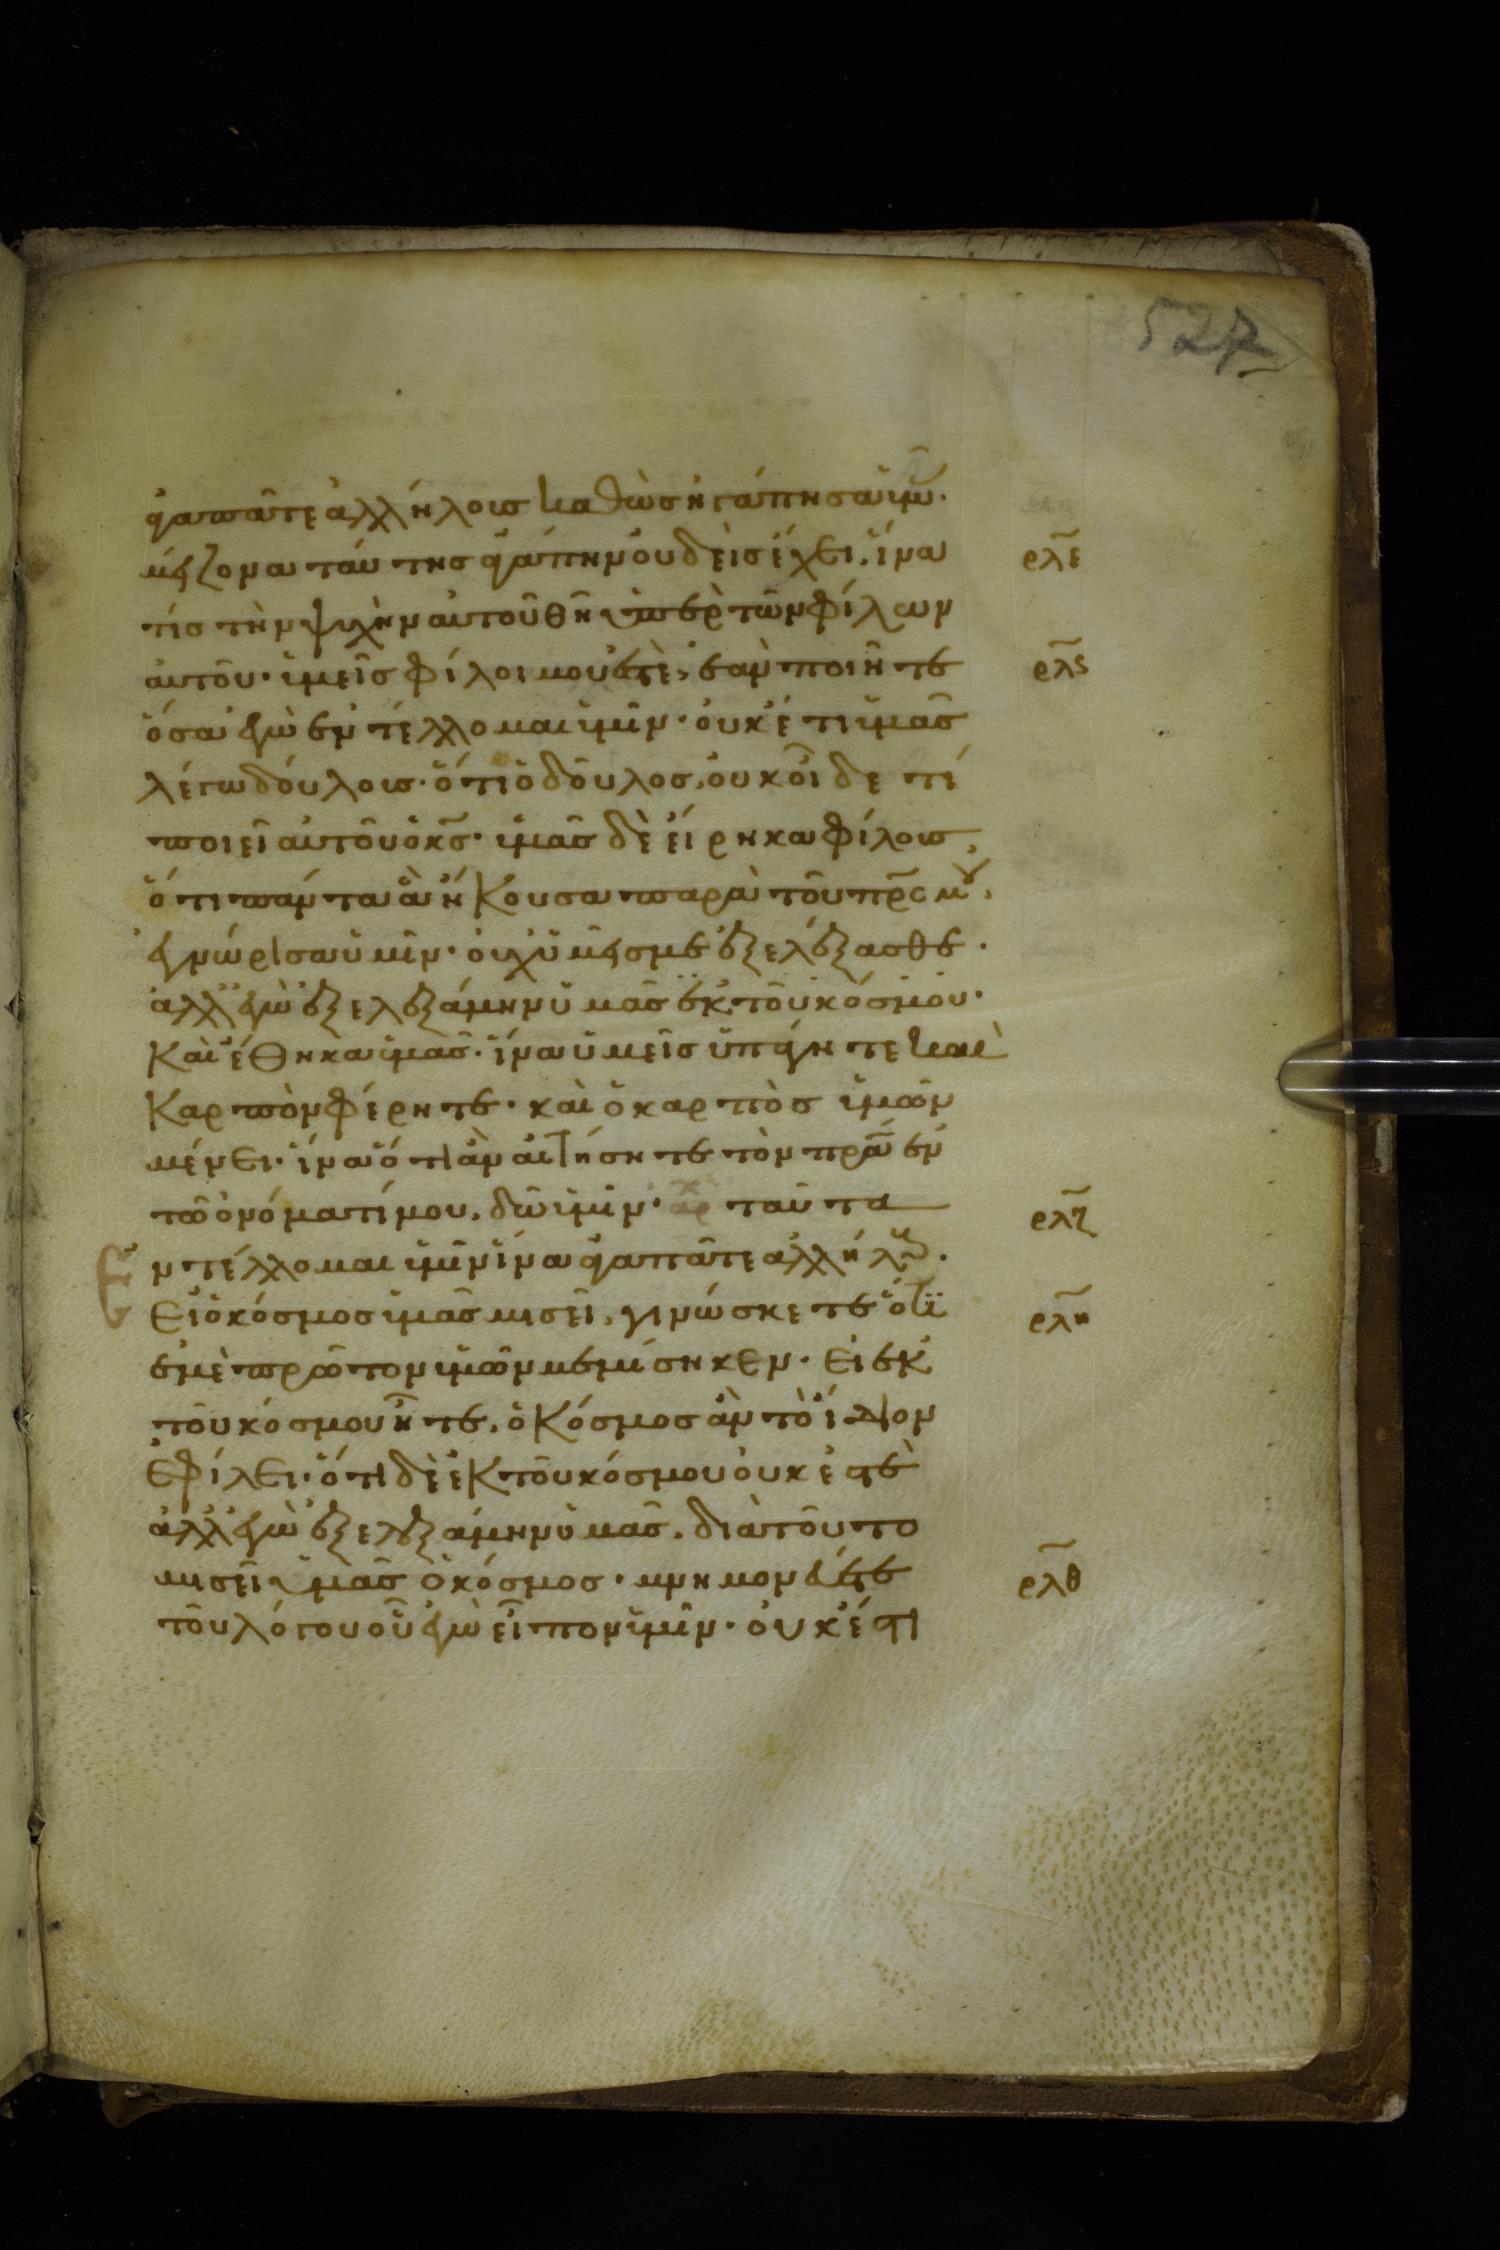 527
ἀγαπᾶτε ἀλλήλους καθὼς ἠγάπησα ὑμᾶς.
μείζονα ταύτης ἀγάπην οὐδεὶς ἔχει, ἵνα ρλε
τις τὴν ψυχὴν αὐτοῦ θῇ ὑπὲρ τῶν φίλων
αὐτοῦ· ὑμεῖς φίλοι μου ἐστὲ, ἐὰν ποιῆτε ρλς
ὅσα ἐγὼ ἐντέλλομαι ὑμῖν· οὐκέτι ὑμᾶς
λέγω δούλους· ὅτι ὁ δοῦλος, οὐκ οἶδε τί
ποιεῖ αὐτοῦ ὁ κς· ὑμᾶς δὲ εἴρηκα φίλους,
ὅτι πάντα ἃ ἤκουσα παρὰ τοῦ πρς μου,
ἐγνώρισα ὑμῖν· οὐχ ὑμεῖς με ἐξελέξασθε.
ἀλλ' ἐγὼ ἐξελεξάμην ὑμᾶς ἐκ τοῦ κόσμου·
καὶ ἔθηκα ὑμᾶς· ἵνα ὑμεῖς ὑπάγητε καὶ
καρπὸν φέρητε· καὶ ὁ καρπὸς ὑμῶν
μένει· ἵνα ὅ τι ἂν αἰτήσητε τὸν πρα ἐν
τῷ ὀνόματί μου, δῷ ὑμῖν· ταῦτα ρλζ
Ἐντέλλομαι ὑμῖν ἵνα ἀγαπᾶτε ἀλλήλους.
Εἰ ὁ κόσμος ὑμᾶς μισεῖ, γινώσκετε ὅτι ρλη
ἐμὲ πρῶτον ὑμῶν μεμίσηκεν· εἰ ἐκ
τοῦ κόσμου ἦτε, ὁ κόσμος ἂν τὸ ἴδιον
ἐφίλει· ὅτι δὲ ἐκ τοῦ κόσμου οὐκ ἐστὲ
ἀλλ' ἐγὼ ἐξελεξάμην ὑμᾶς, διὰ τοῦτο
μισεῖ ὑμᾶς ὁ κόσμος· μνημονεύετε ρλθ
τοῦ λόγου οὗ ἐγὼ εἶπον ὑμῖν· οὐκ ἔστι